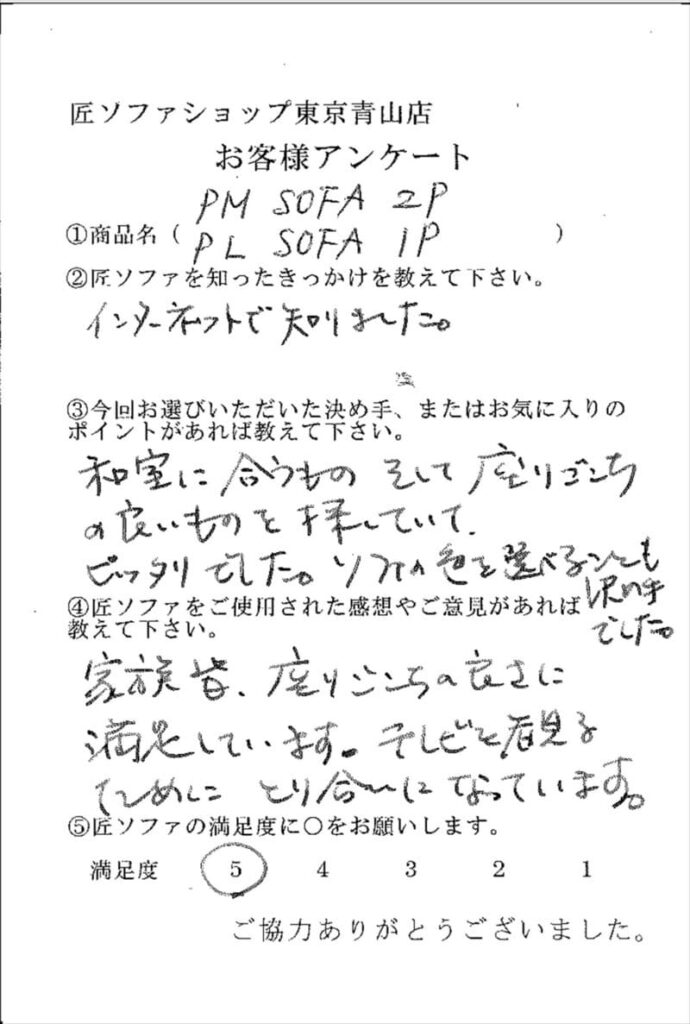 匠ソファショップ東京青山店
お客様アンケート
PM SOFA 2P
①商品名（ PL SOFA 1P ）
②匠ソファを知ったきっかけを教えて下さい。
インターネットで知りました。
③今回お選びいただいた決め手、またはお気に入りの
ポイントがあれば教えて下さい。
和室に合うもの そして 座りごこち
の良いものを探していて、
ピッタリでした。ソファの色を選べることも
決め手
でした。
④匠ソファをご使用された感想やご意見があれば
教えて下さい。
家族皆、座りごこちの良さに
満足しています。テレビを観る
ために とり合いになっています。
⑤匠ソファの満足度に〇をお願いします。
満足度 5 4 3 2 1
ご協力ありがとうございました。